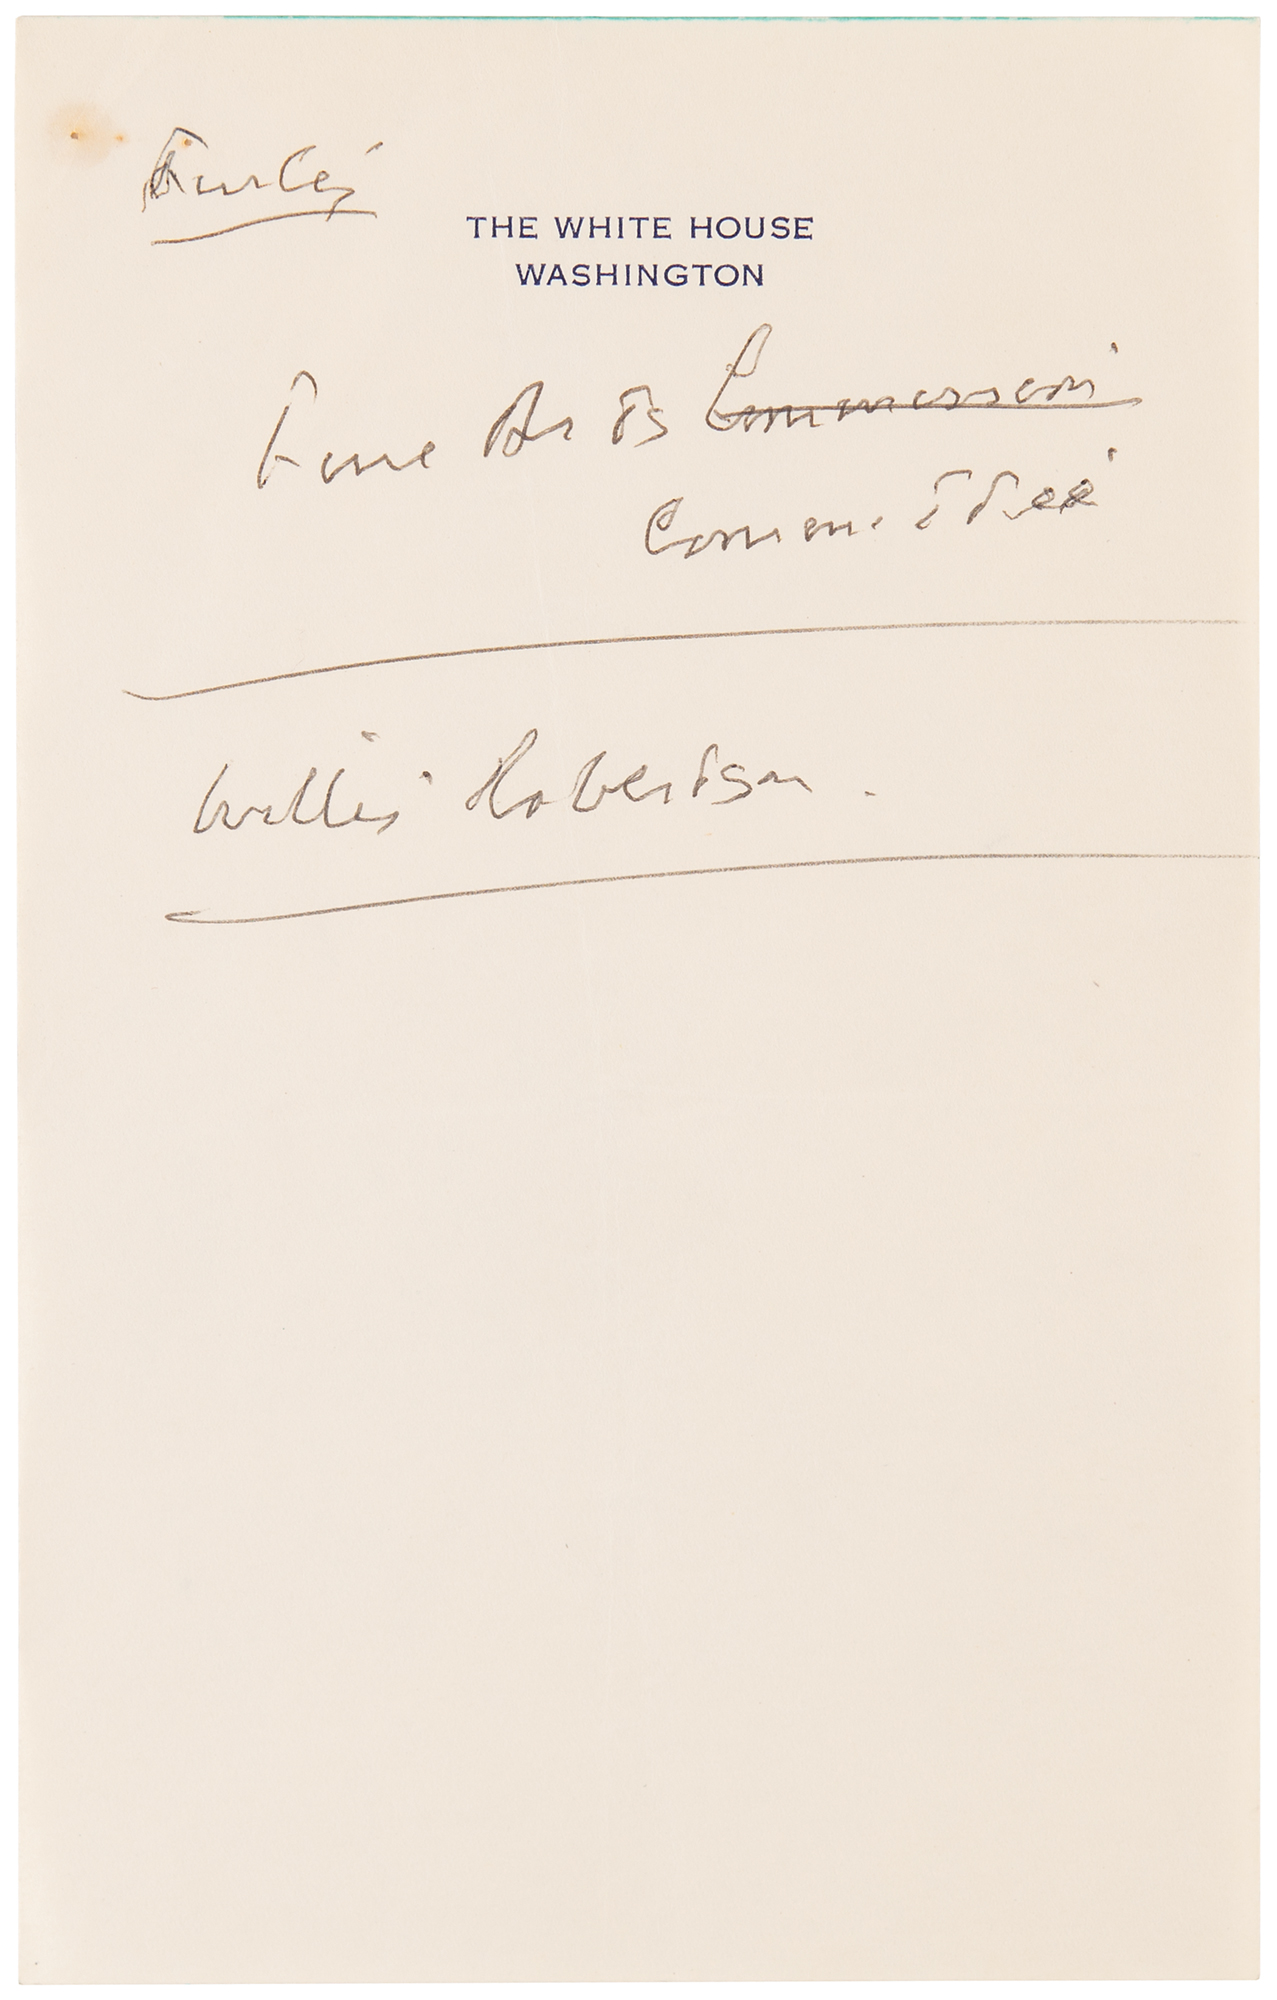 Finley
THE WHITE HOUSE
WASHINGTON
Fine Arts Commission
Committee
Willis Robertson.